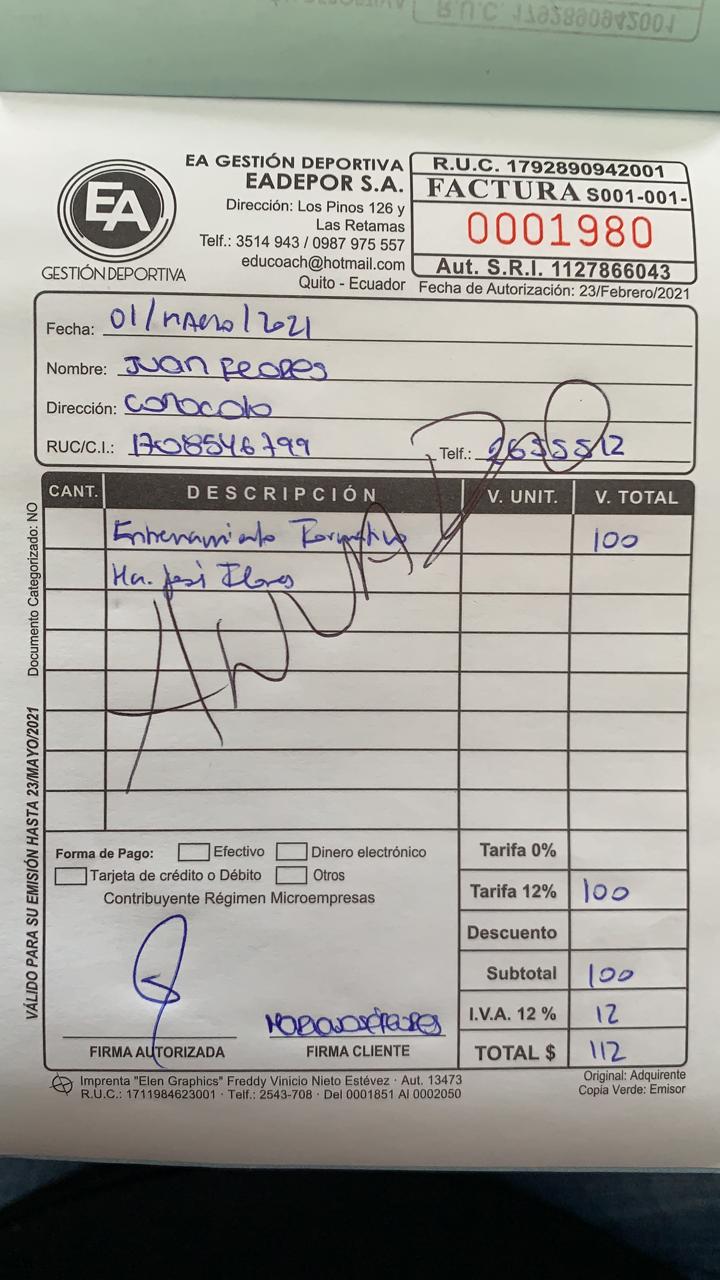 R.U.C. 1792890942001
EA
GESTIÓN DEPORTIVA
EA GESTIÓN DEPORTIVA
EADEPOR S.A.
Dirección: Los Pinos 126 y
Las Retamas
Telf.: 3514 943 / 0987 975 557
educoach@hotmail.com
Quito - Ecuador
R.U.C. 1792890942001
FACTURA S001-001-
0001980
Aut. S.R.I. 1127866043
Fecha de Autorización: 23/Febrero/2021
Fecha: 01/Marzo/2021
Nombre: Juan Flores
Dirección: Conocoto
RUC/C.I.: 1708546799 Telf.: 2655512
CANT. DESCRIPCIÓN V. UNIT. V. TOTAL
Entrenamiento Formativo 100
Ma. José Flores
ANULADO
Documento Categorizado: NO
VÁLIDO PARA SU EMISIÓN HASTA 23/MAYO/2021
Forma de Pago: Efectivo Dinero electrónico
Tarjeta de crédito o Débito Otros
Contribuyente Régimen Microempresas
Tarifa 0%
Tarifa 12% 100
Descuento
Subtotal 100
I.V.A. 12 % 12
TOTAL $ 112
FIRMA AUTORIZADA FIRMA CLIENTE
Imprenta "Elen Graphics" Freddy Vinicio Nieto Estévez · Aut. 13473
R.U.C.: 1711984623001 · Telf.: 2543-708 · Del 0001851 Al 0002050
Original: Adquirente
Copia Verde: Emisor